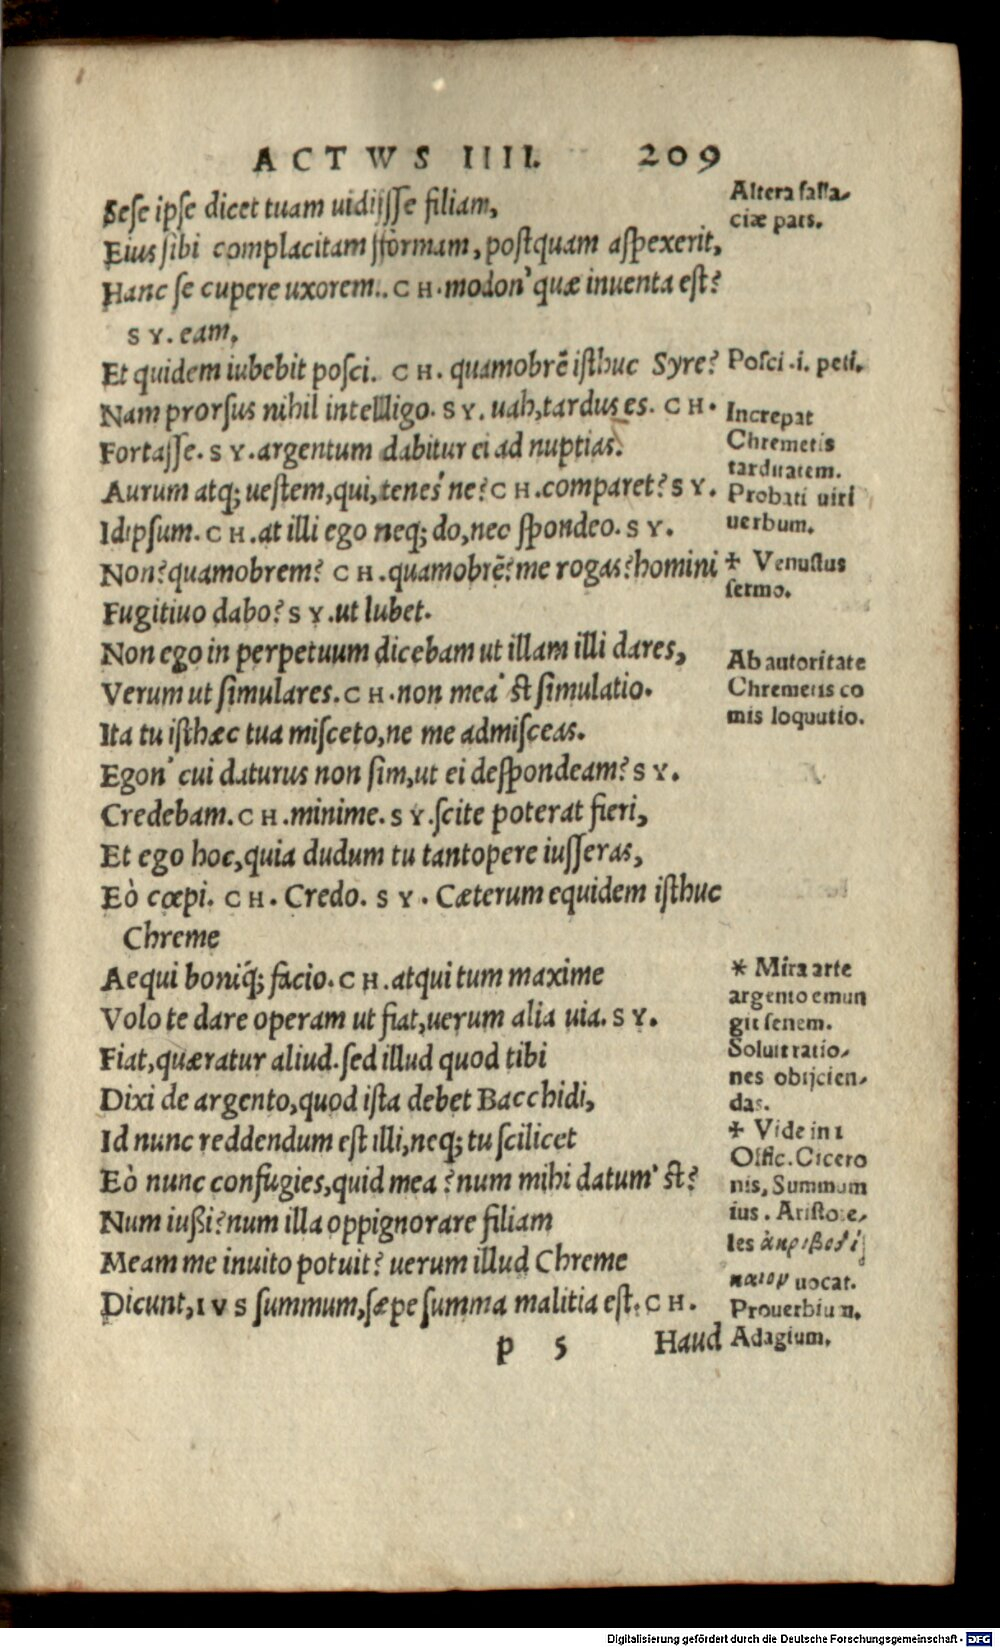 ACTWS IIII. 209
Sese ipse dicet tuam uidissse filiam,
Eius sibi complacitam fformam, postquam aspexerit,
Hanc se cupere uxorem.. CH. modon' quæ inuenta est?
SY. eam.
Et quidem iubebit posci. CH. quamobrē isthuc Syre?
Nam prorsus nihil intelligo. SY. uah, tardus es. CH.
Fortasse. SY. argentum dabitur ei ad nuptias.
Aurum atq; uestem, qui, tenes' ne? CH. comparet? SY.
Idipsum. CH. at illi ego neq; do, nec spondeo. SY.
Non? quamobrem? CH. quamobrē? me rogas? homini
Fugitiuo dabo? SY. ut lubet.
Non ego in perpetuum dicebam ut illam illi dares,
Verum ut simulares. CH. non mea' st simulatio.
Ita tu isthæc tua misceto, ne me admisceas.
Egon' cui daturus non sim, ut ei despondeam? SY.
Credebam. CH. minime. SY. scite poterat fieri,
Et ego hoc, quia dudum tu tantopere iusseras,
Eò cœpi. CH. Credo. SY. Cæterum equidem isthuc
Chreme
Aequi boniq́; facio. CH. atqui tum maxime
Volo te dare operam ut fiat, uerum alia uia. SY.
Fiat, quæratur aliud. sed illud quod tibi
Dixi de argento, quod ista debet Bacchidi,
Id nunc reddendum est illi, neq; tu scilicet
Eò nunc confugies, quid mea? num mihi datum' st?
Num iußi? num illa oppignorare filiam
Meam me inuito potuit? uerum illud Chreme
Dicunt, IVS summum, sæpe summa malitia est. CH.
p 5 Haud
Altera falla-
ciæ pars.
Posci .i. peti.
Increpat
Chremetis
tarditatem.
Probati uiri
uerbum.
✢ Venustus
sermo.
Ab autoritate
Chremetis co
mis loquutio.
* Mira arte
argento emun
git senem.
Soluit ratio-
nes obijcien-
das.
✢ Vide in 1
Offic. Cicero
nis, Summum
ius. Aristote-
les ἀκριβοδί
καιον uocat.
Prouerbium.
Adagium.
Digitalisierung gefördert durch die Deutsche Forschungsgemeinschaft - DFG